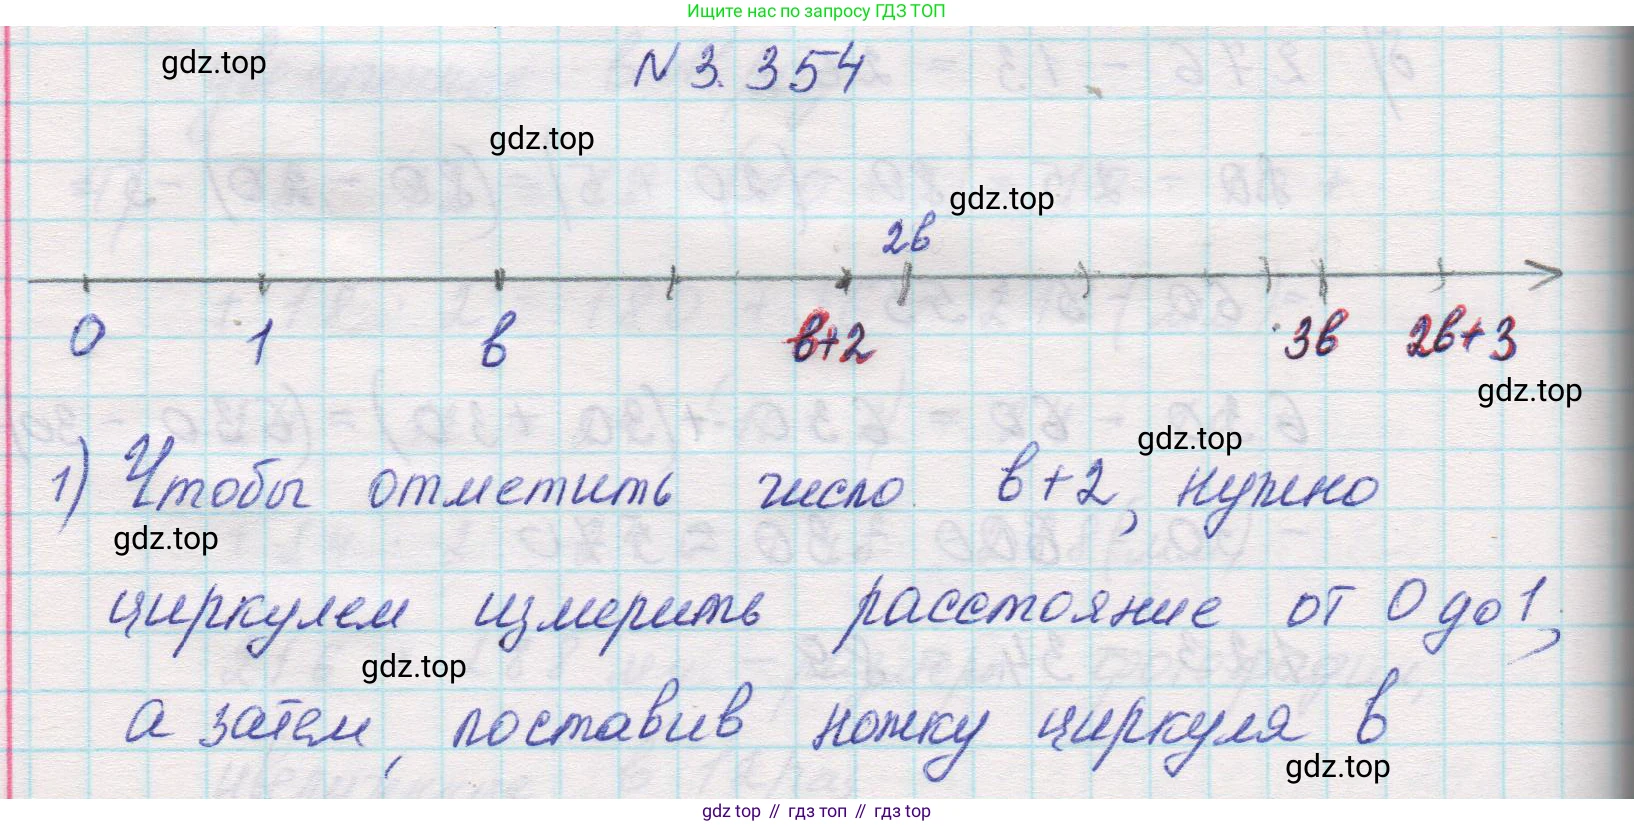 Ищите нас по запросу ГДЗ ТОП
gdz.top
N 3. 354
gdz.top
gdz.top
2в
0 1 в в+2 3в 2в+3
gdz.top
gdz.top
1) Чтобы отметить число в+2, нужно
gdz.top
циркулем измерить расстояние от 0 до 1,
gdz.top
а затем, поставив ножку циркуля в
gdz.top
gdz top // гдз топ // гдз top